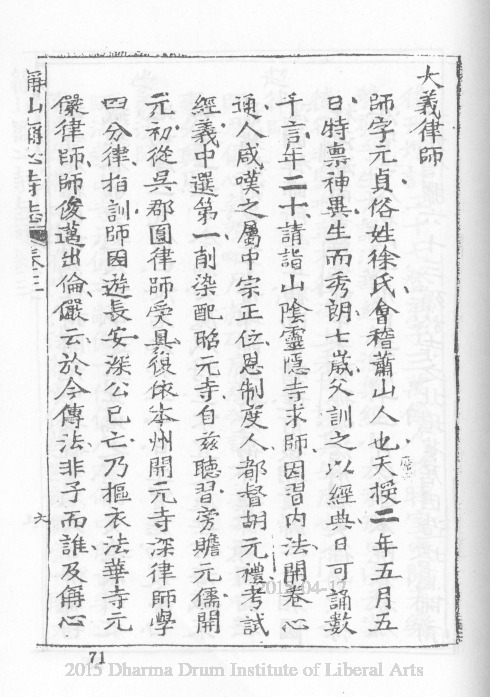 大義律師
師字元貞俗姓徐氏會稽蕭山人也天授二年五月五
日特禀神異生而秀朗七嵗父訓之以經典日可誦數
千言年二十請詣山陰靈隱寺求師因習內法開卷心
通人咸嘆之屬中宗正位恩制度人都督胡元禮考試
經義中選第一削染配昭元寺自玆聽習旁贍元儒開
元初從吳郡圓律師受具復依本州開元寺深律師學
四分律指訓師因遊長安深公已亡乃摳衣法華寺元
儼律師師俊邁出倫儼云於今傳法非子而誰及稱心
稱山稱心寺志 卷三
六
71
2015-04-17
2015 Dharma Drum Institute of Liberal Arts